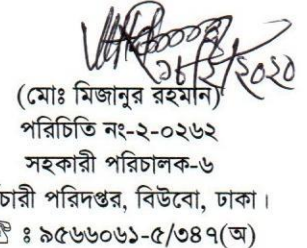 ১৮/২/২০২০
(মোঃ মিজানুর রহমান)
পরিচিতি নং-২-০২৬২
সহকারী পরিচালক-৬
চারী পরিদপ্তর, বিউবো, ঢাকা।
ঃ ৯৫৬৬০৬১-৫/৩৪৭(অ)